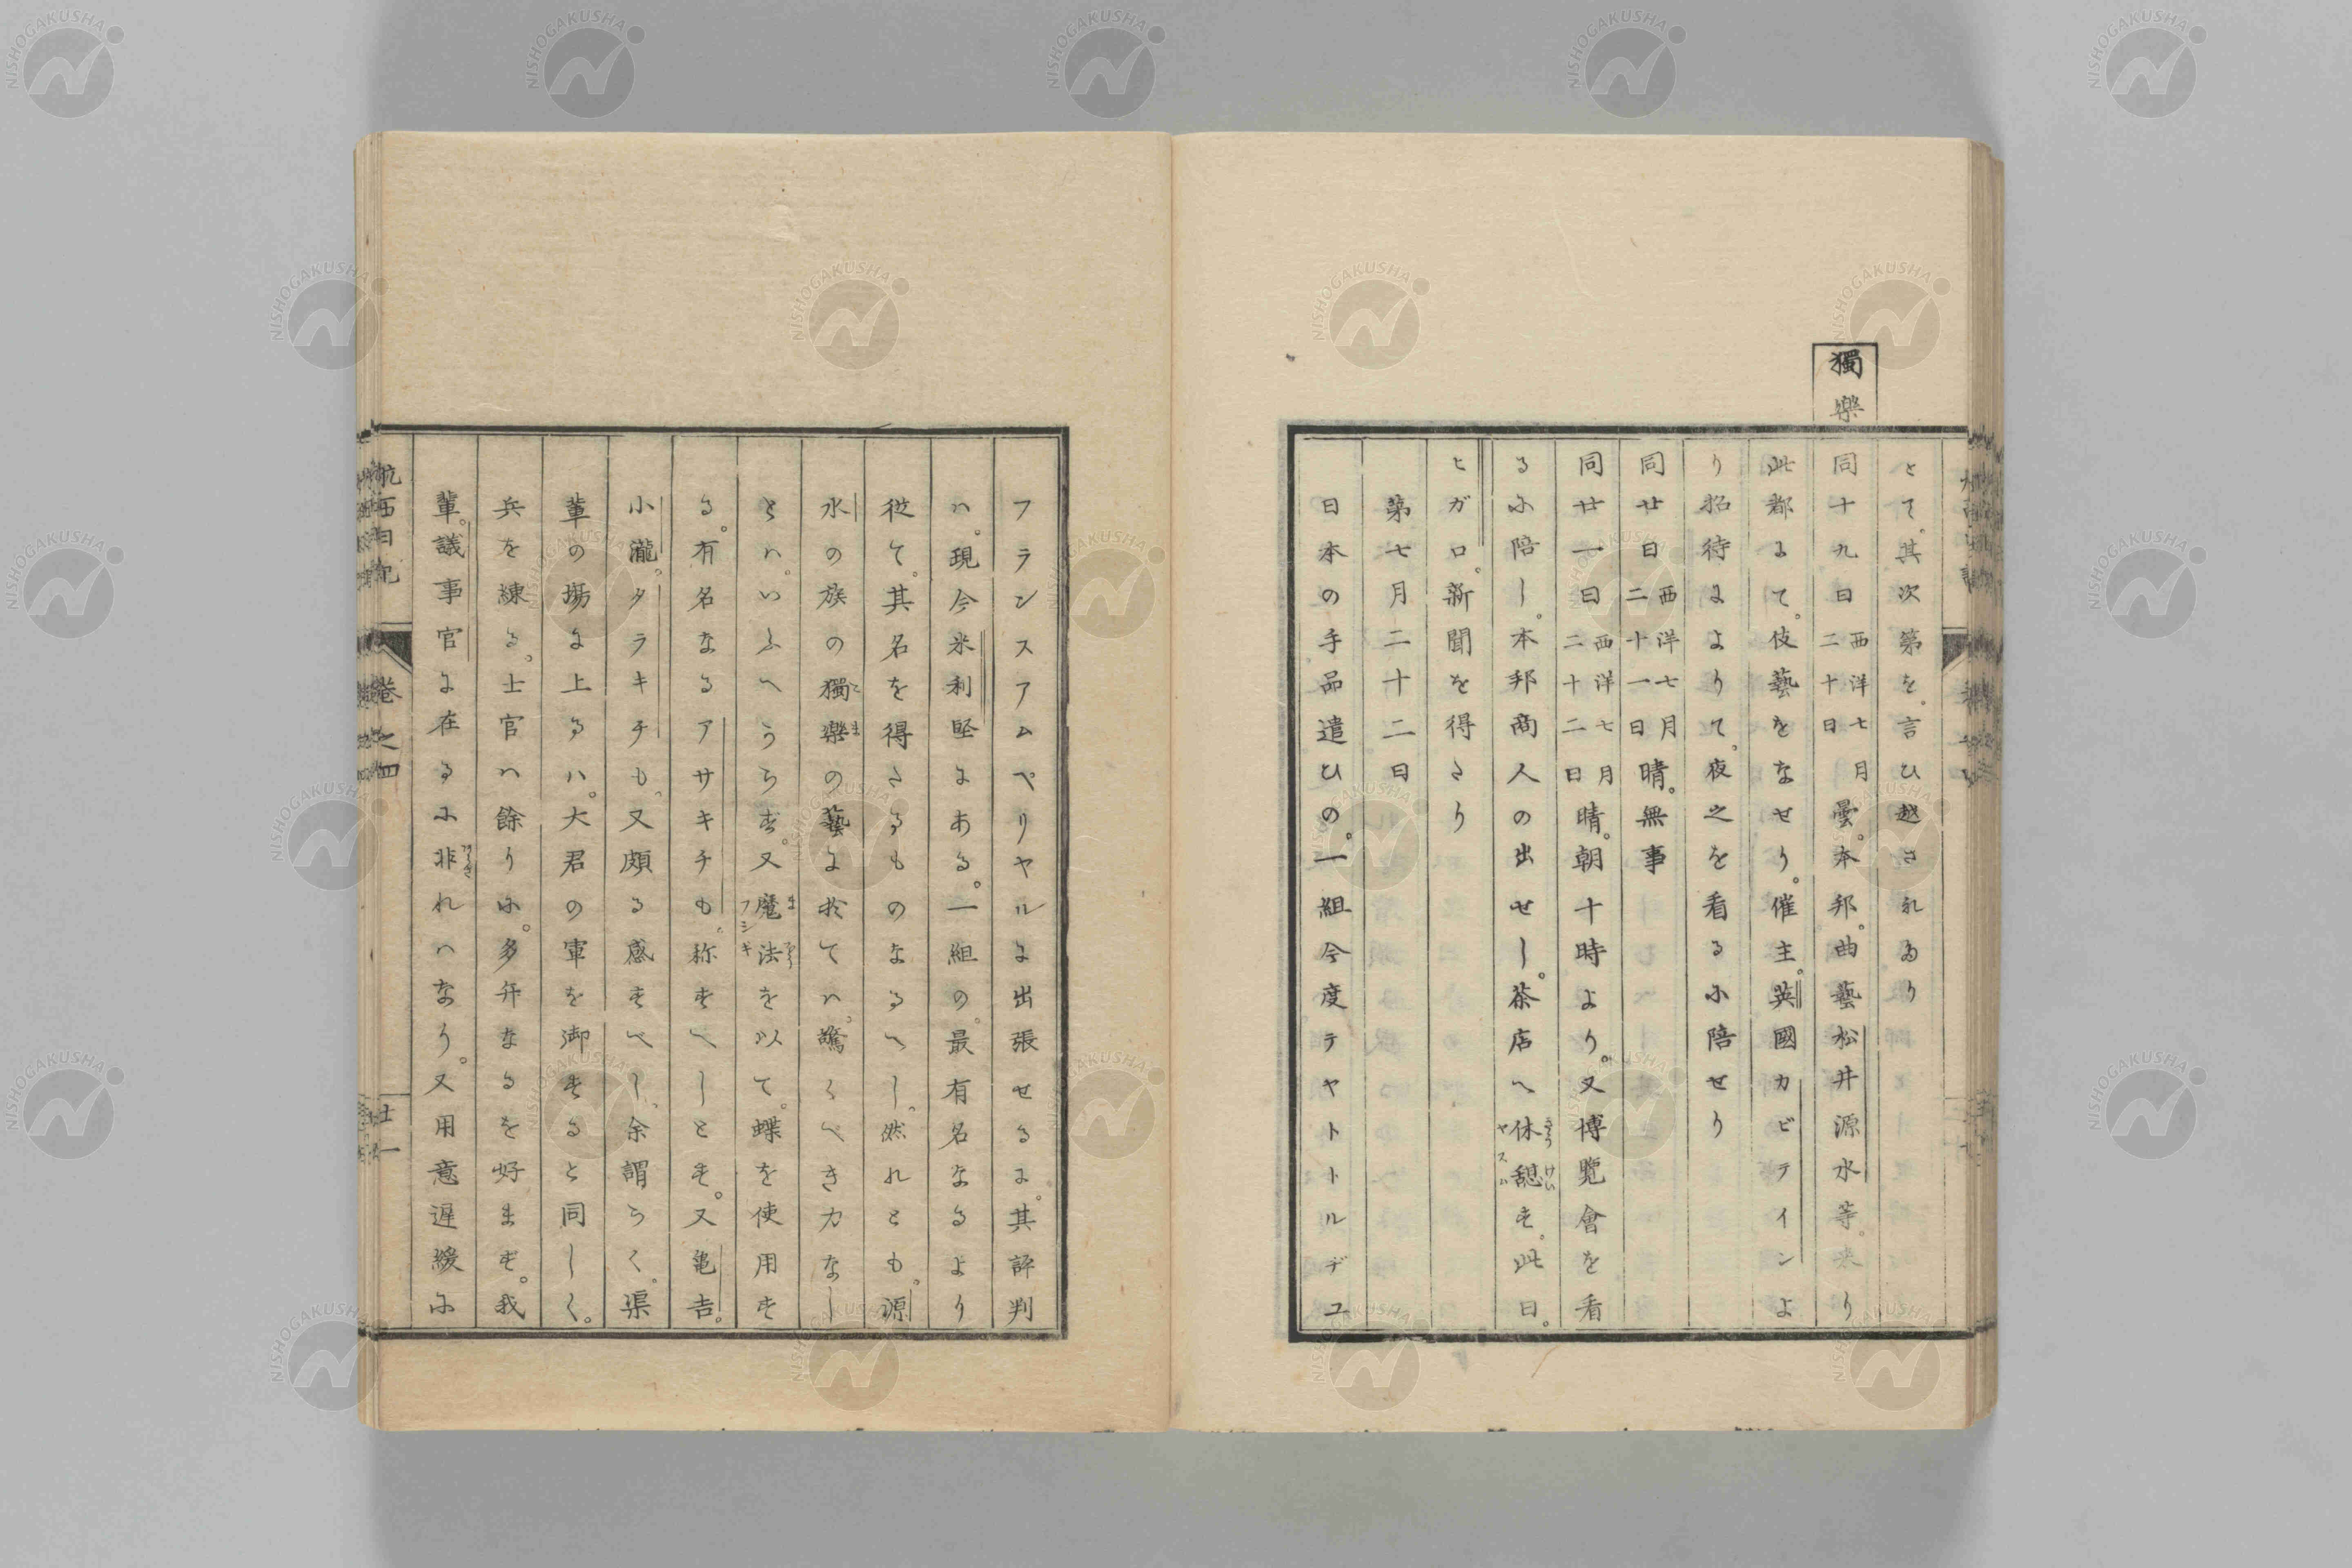 獨樂
とて。其次第を。言ひ越されゐり
同十九日西洋七月二十日曇。本邦。曲藝松井源水等。来り
此都よて。伎藝をなせり。催主。英國カビテインよ
り招待よよりて。夜之を看る小陪せり
同廿日西洋七月二十一日晴。無事
同廿一日西洋七月二十二日晴。朝十時より。又博覽會を看
る小陪し。本邦商人の出せし。茶店へ休憩も。此日。
ヒガロ。新聞を得さり
第七月二十二日
日本の手品遣ひの。一組今度テヤトトルデユ
フランスアムペリヤルよ出張せるよ。其評判
ハ。現今米利堅よある。一組の。最有名なるより
從て。其名を得さるものなるへし。然れとも。源
水の族の獨樂の藝よ於てハ。驚くへき力なし
とハ。いふへうらず。又魔法を以て。蝶を使用す
る。有名なるアサキチも。称すへしとも。又亀吉。
小瀧。タラキチも。又頗る感すべし、余謂らく。渠
輩の場よ上るハ。大君の軍を御すると同しく。
兵を練る。士官ハ餘り小。多弁なるを好まず。我
輩。議事官よ在る小非れハなり。又用意遅緩小
航西日記
卷之四
十一
NISHOGAKUSHA